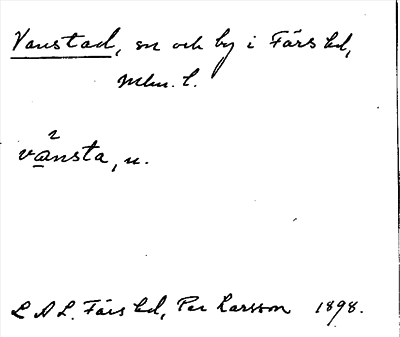 Vanstad, sn och by i Färs hd,
Mlm. l.
2
vansta, n.
L A L. Färs hd, Per Larsson 1898.